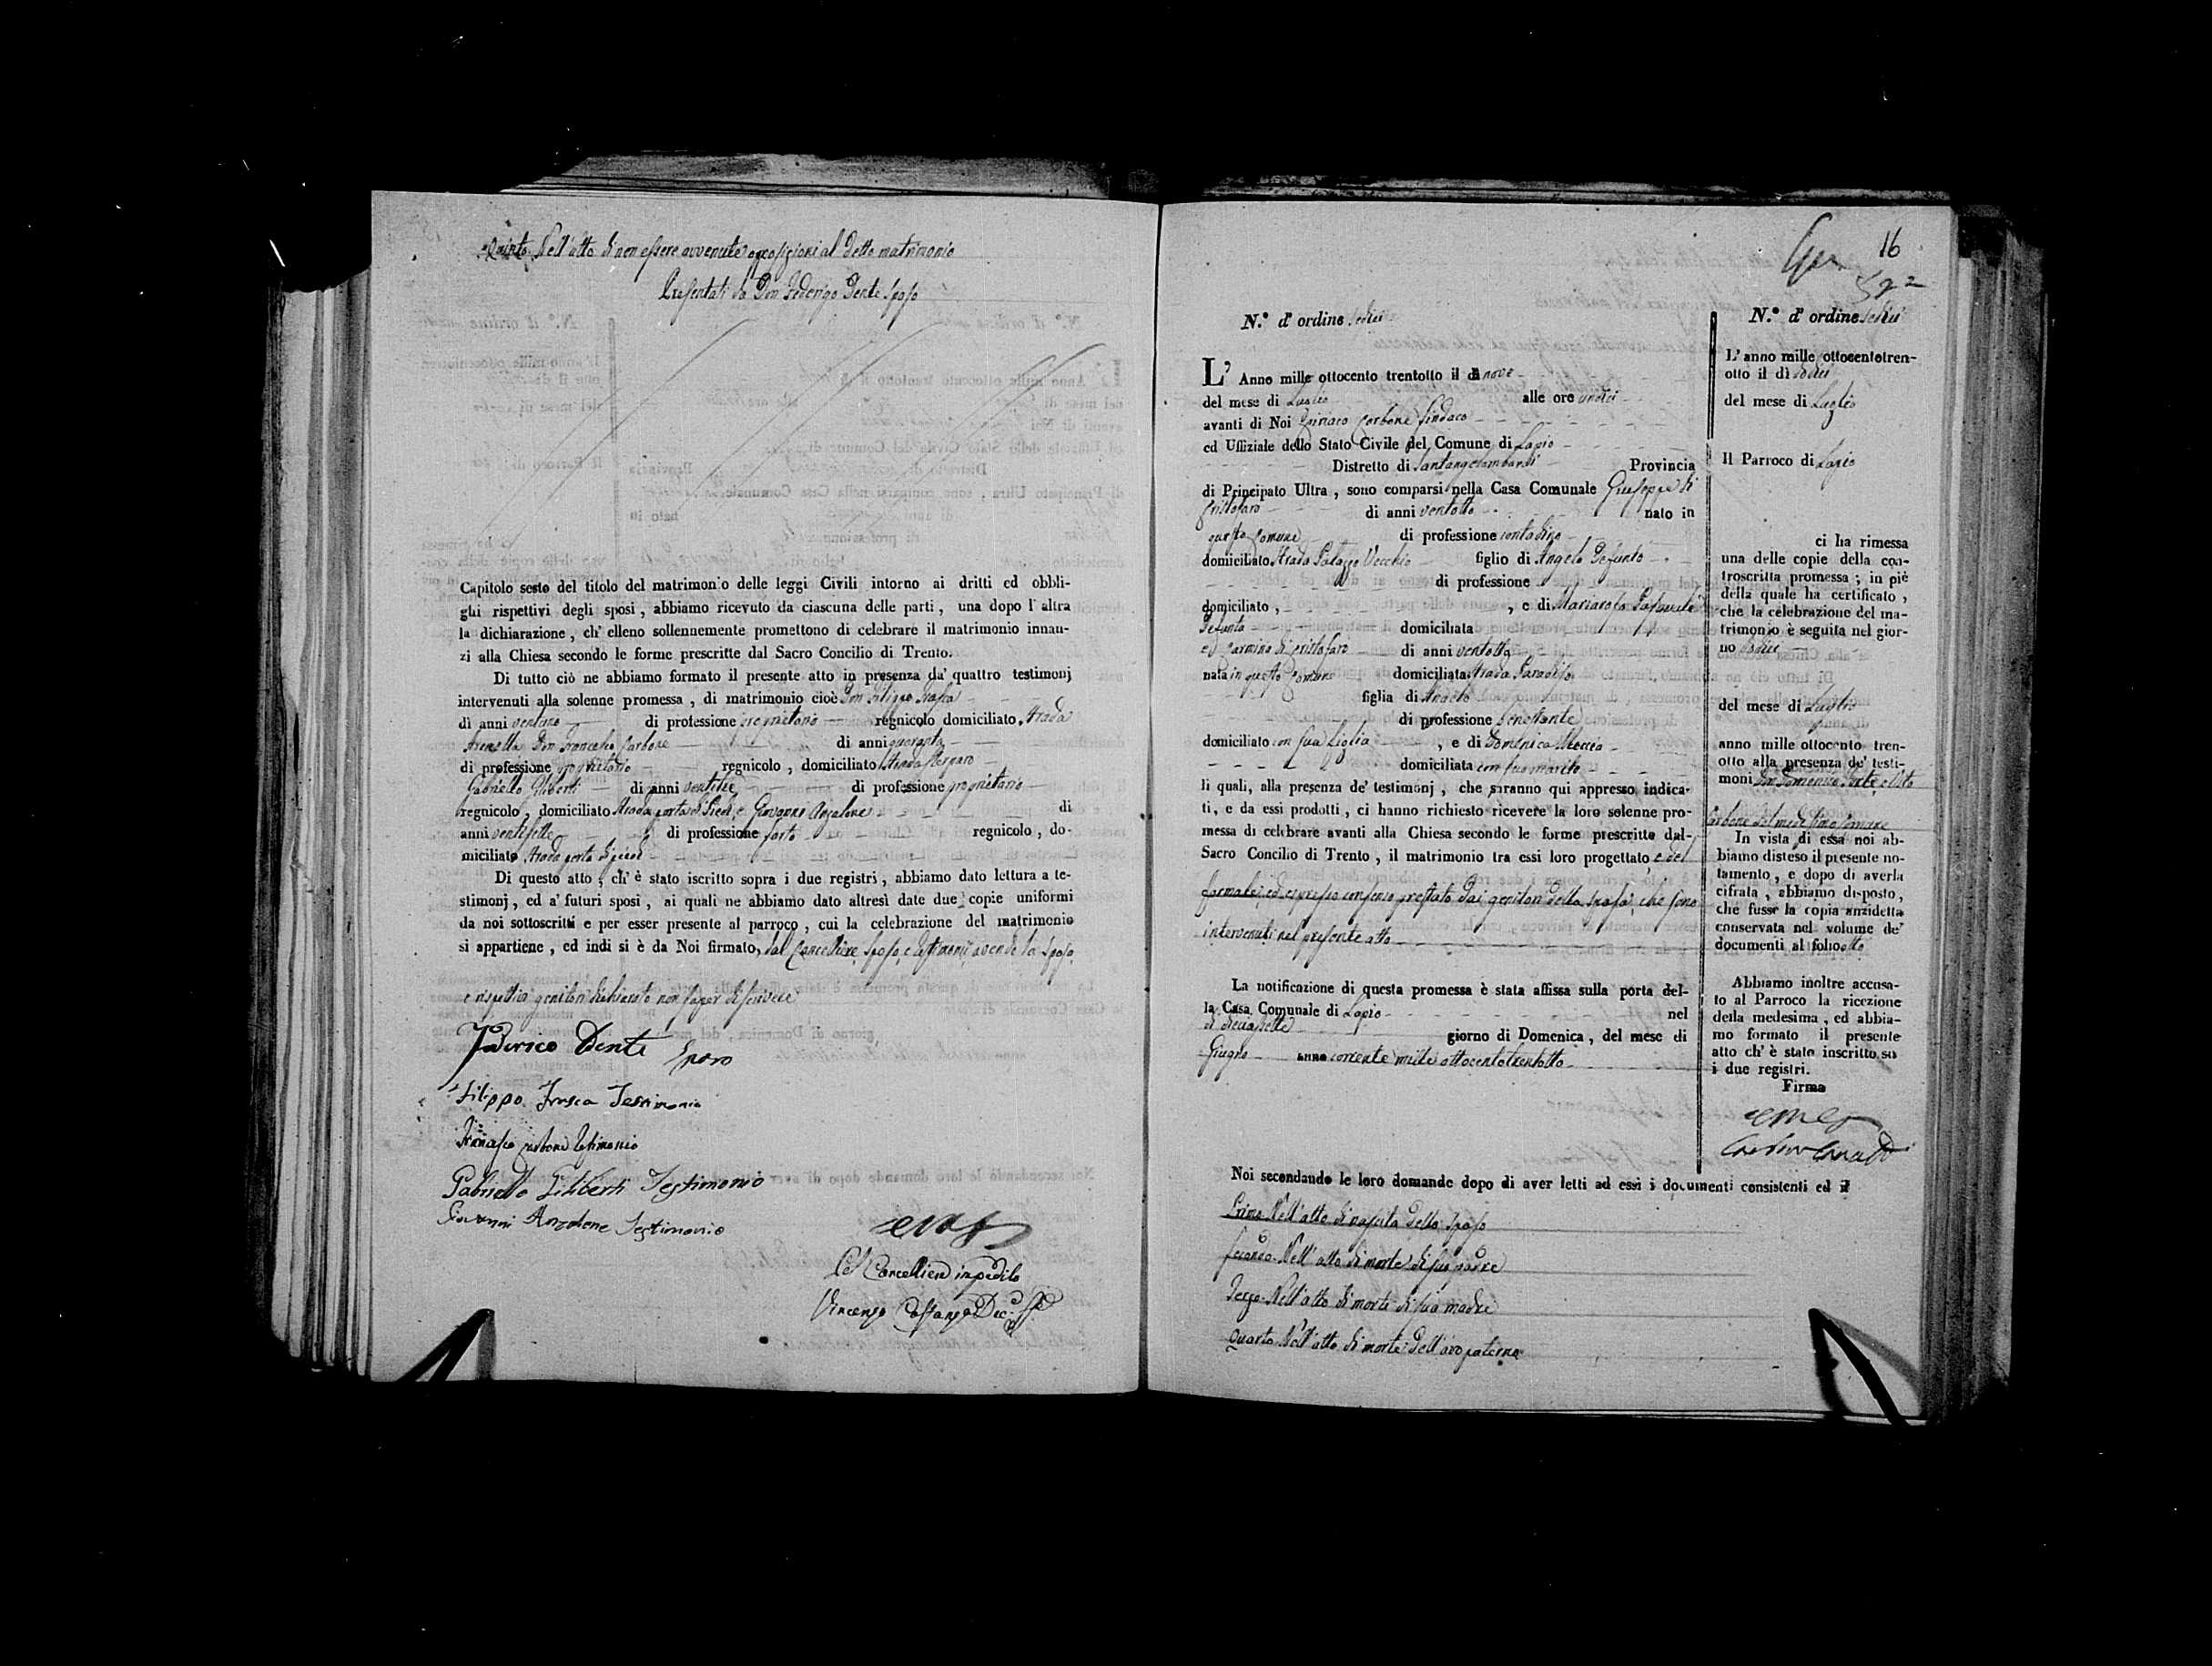 Quinto Nell'atto di non essere avvenute opposizioni al detto matrimonio
Presentati da Don Federigo Dente sposo
Capitolo sesto del titolo del matrimonio delle leggi Civili intorno ai dritti ed obbli-
ghi rispettivi degli sposi, abbiamo ricevuto da ciascuna delle parti, una dopo l'altra
la dichiarazione, ch'elleno sollennemente promettono di celebrare il matrimonio innan-
zi alla Chiesa secondo le forme prescritte dal Sacro Concilio di Trento.
Di tutto ciò ne abbiamo formato il presente atto in presenza da' quattro testimonj
intervenuti alla solenne promessa, di matrimonio cioè Don Filippo
di anni ventuno di professione proprietario regnicolo domiciliato Strada
Don Francesco Carbone di anni quaranta
di professione proprietario regnicolo, domiciliato Strada
Gabriello Giliberti di anni ventitre di professione proprietario
regnicolo, domiciliato Strada porta di Piedi, e Giovanni Anzalone di
anni ventisette di professione sarto regnicolo, do-
miciliato Strada porta di piedi
Di questo atto, ch'è stato iscritto sopra i due registri, abbiamo dato lettura a te-
stimonj, ed a' futuri sposi, ai quali ne abbiamo dato altresì date due copie uniformi
da noi sottoscritti e per esser presente al parroco, cui la celebrazione del matrimonio
si appartiene, ed indi si è da Noi firmato, dal Cancelliere, sposo, e testimonii avendo la sposa
e rispettivi genitori dichiarato non saper di scrivere
Federico Dente sposo
Filippo Testimonio
Carbone testimonio
Gabriello Giliberti Testimonio
Giovanni Anzalone Testimonio
Il Cancelliere impedito
Vincenzo
16
N.° d'ordine sedici
L'Anno mille ottocento trentotto il dì nove
del mese di Luglio alle ore undici
avanti di Noi Ciriaco Carbone Sindaco
ed Uffiziale dello Stato Civile del Comune di Lapio
Distretto di Santangelombardi Provincia
di Principato Ultra, sono comparsi nella Casa Comunale Giuseppe di
Cristofaro di anni ventotto nato in
questo Comune di professione contadino
domiciliato Strada Palazzo Vecchio figlio di Angelo Defunto
di professione
domiciliato, , e di Mariarosa
Defunta domiciliata
ed Carmina di Cristofaro di anni ventotto
nata in questo Comune domiciliata Strada Paradiso
figlia di Angelo
di professione benestante
domiciliato con sua figlia , e di Domenica
domiciliata con suo marito
li quali, alla presenza de' testimonj, che saranno qui appresso indica-
ti, e da essi prodotti, ci hanno richiesto ricevere la loro solenne pro-
messa di celebrare avanti alla Chiesa secondo le forme prescritte dal-
Sacro Concilio di Trento, il matrimonio tra essi loro progettato, e del
formale, ed espresso consenso prestato dai genitori della sposa, che sono
intervenuti nel presente atto
La notificazione di questa promessa è stata affissa sulla porta del-
la Casa Comunale di Lapio nel
dì diciassette giorno di Domenica, del mese di
Giugno anno corrente mille ottocentotrentotto
N.° d'ordine sedici
L'anno mille ottocentotren-
otto il dì dodici
del mese di Luglio
Il Parroco di Lapio
ci ha rimessa
una delle copie della con-
troscritta promessa; in piè
della quale ha certificato,
che la celebrazione del ma-
trimonio è seguita nel gior-
no dodici
del mese di Luglio
anno mille ottocento tren-
otto alla presenza de' testi-
moni Don Domenico Dente, e
Carbone del medesimo Comune
In vista di essa noi ab-
biamo disteso il presente no-
tamento, e dopo di averla
cifrata, abbiamo disposto,
che fusse la copia anzidetta
conservata nel volume de'
documenti al folio otto
Abbiamo inoltre accusa-
to al Parroco la ricezione
della medesima, ed abbia-
mo formato il presente
atto ch'è stato inscritto su
i due registri.
Firma
Noi secondando le loro domande dopo di aver letti ad essi i documenti consistenti ed il
Primo Nell'atto di nascita dello sposo
Secondo Nell'atto di morte di suo padre
Terzo Nell'atto di morte di sua madre
Quarto Nell'atto di morte dell'avo paterno